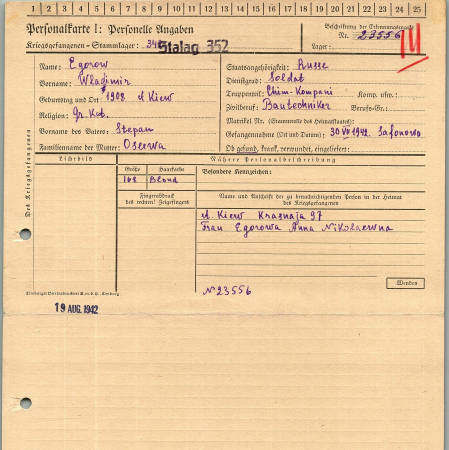 1 2 3 4 5 6 7 8 9 10 11 12 13 14 15 16 17 18 19 20 21 22 23 24 25
Personalkarte I: Personelle Angaben
Kriegsgefangenen-Stammlager: Stalag 352
Beschriftung der Erkennungsmarke
Nr. 23556
Lager:
III
Des Kriegsgefangenen
Name: Egorow
Vorname: Wladimir
Geburtstag und Ort: 1908 st Kiew
Religion: Gr. Kat.
Vorname des Vaters: Stepan
Familienname der Mutter:
Staatsangehörigkeit: Russe
Dienstgrad: Soldat
Truppenteil: Chim-Kompani Komp. usw.:
Zivilberuf: Bautechniker Berufs-Gr.:
Matrikel Nr. (Stammrolle des Heimatstaates):
Gefangennahme (Ort und Datum): 30 VII 1942. Safonowo
Ob gesund, krank, verwundet, eingeliefert:
Lichtbild
Nähere Personalbeschreibung
Größe Haarfarbe
168 Blond
Besondere Kennzeichen:
Fingerabdruck
des rechten! Zeigefingers
Name und Anschrift der zu benachrichtigenden Person in der Heimat
des Kriegsgefangenen
st. Kiew Krasnaja 97
Frau Egorowa Anna Nikolaewna
Wenden
№ 23556
19 AUG. 1942